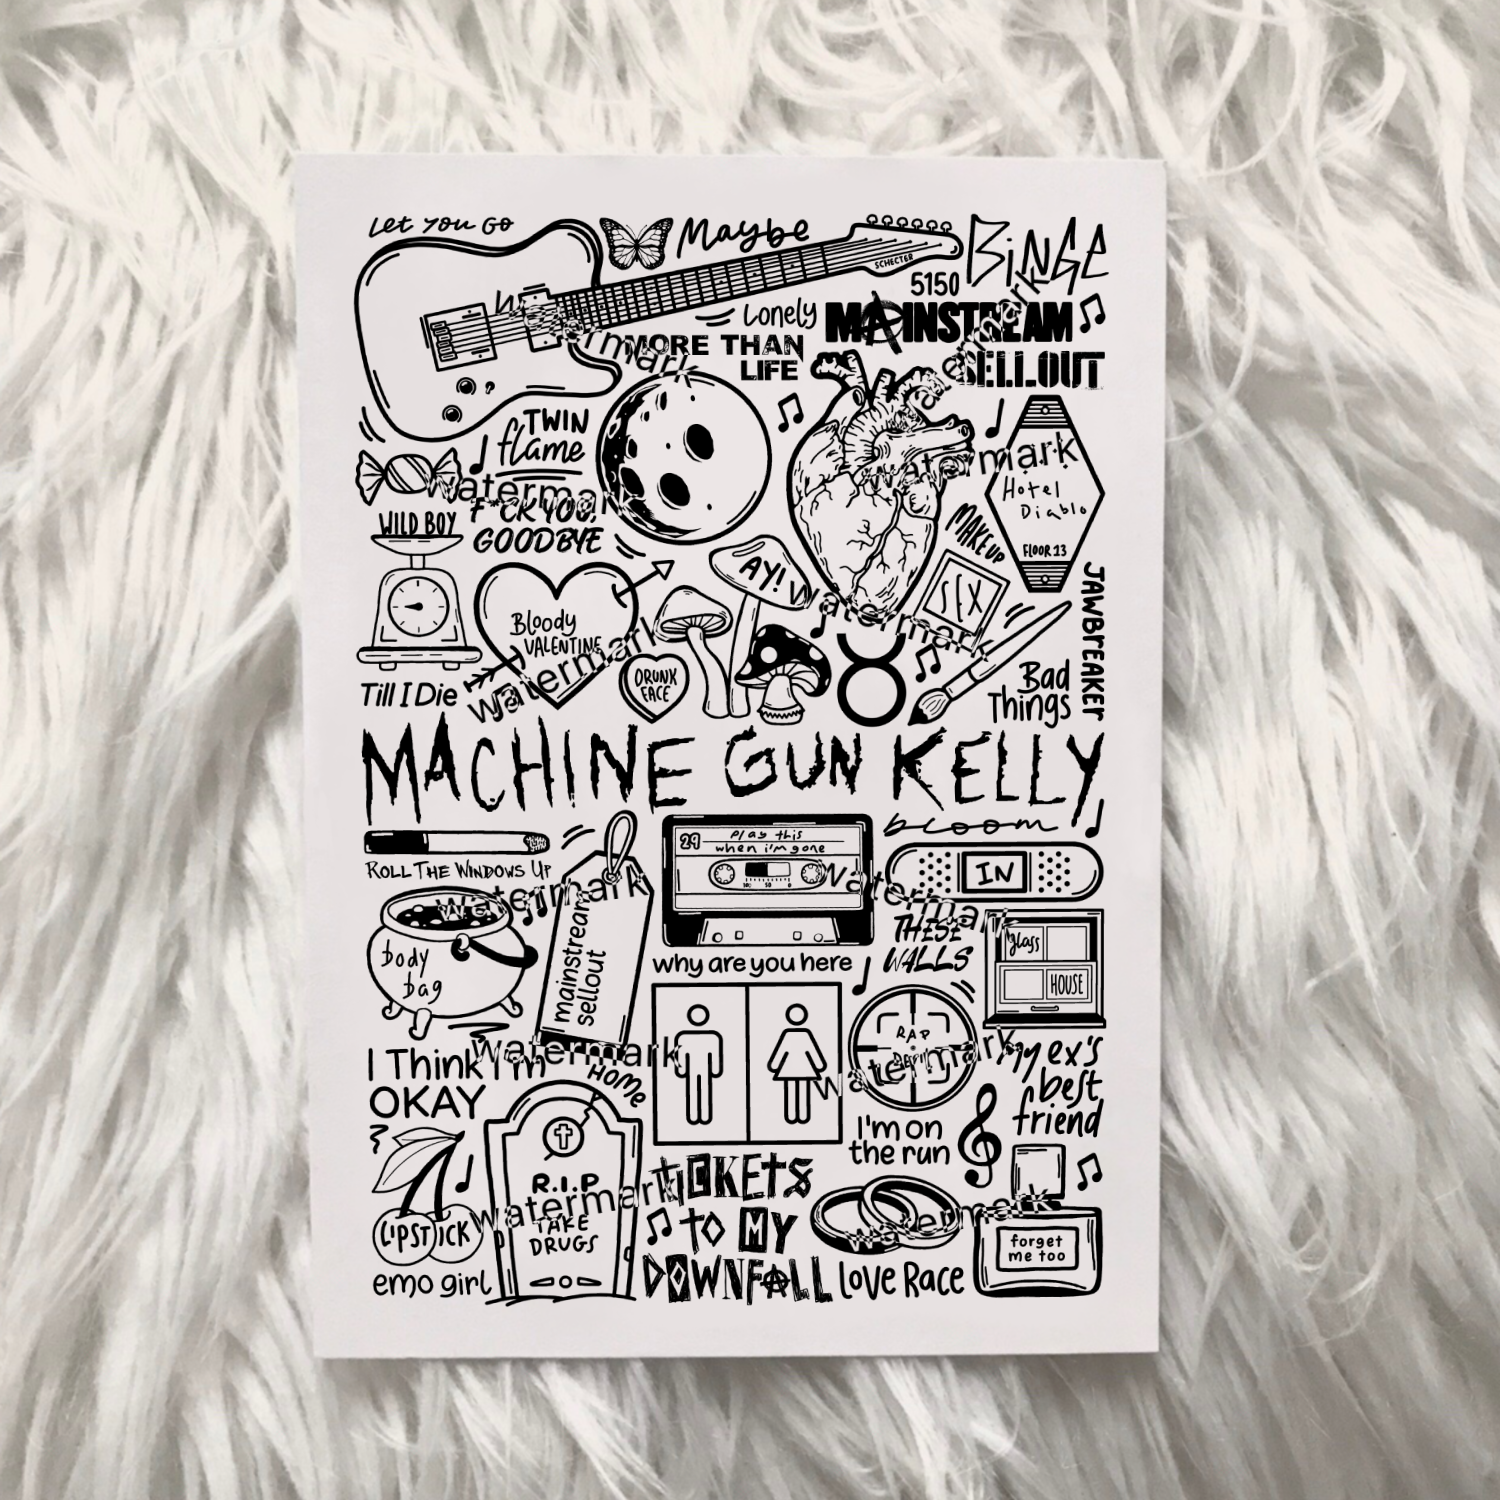 Let You Go
Maybe
SCHECTER
BiNGE
5150
Lonely
MAINSTREAM
SELLOUT
MORE THAN
LIFE
TWIN
flame
watermark
watermark
watermark
Hotel
Diablo
FLOOR 13
WILD BOY
F*CK YOU,
GOODBYE
MAKEUP
SEX
AY!
watermark
JAWBREAKER
Bloody
VALENTINE
watermark
DRUNK
FACE
Till I Die
Bad
Things
MACHINE GUN KELLY
bloom
29
Play this
when i'm gone
100 50 0
ROLL THE WINDOWS UP
IN
watermark
watermark
mainstream
sellout
THESE
WALLS
glass
HOUSE
body
bag
why are you here
RAP
DEVIL
watermark
I Think I'm
OKAY
watermark
HOME
my ex's
best
friend
I'm on
the run
R.I.P
TAKE
DRUGS
watermark
tICKEtS
to MY
DOWNFALL
LIPSTICK
emo girl
love Race
watermark
forget
me too